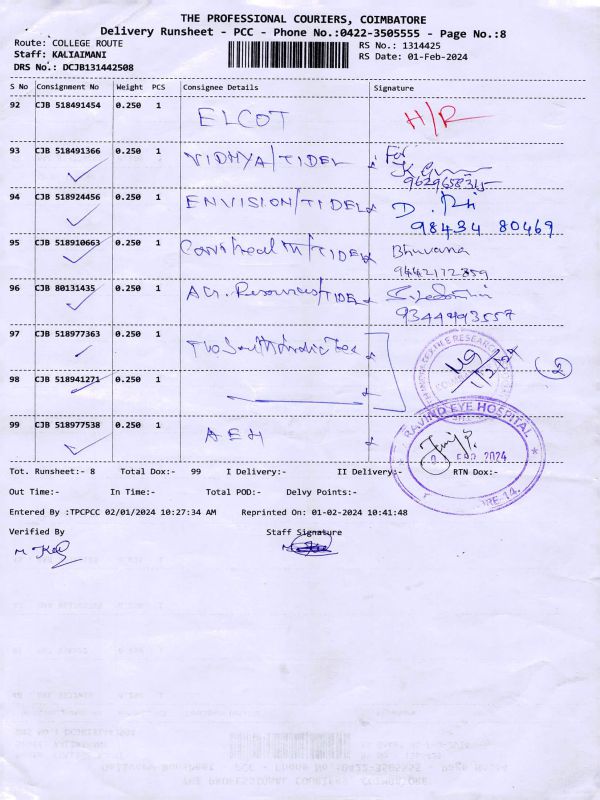 THE PROFESSIONAL COURIERS, COIMBATORE
Delivery Runsheet - PCC - Phone No.:0422-3505555 - Page No.:8
Route: COLLEGE ROUTE
RS No.: 1314425
Staff: KALIAIMANI
RS Date: 01-Feb-2024
DRS No.: DCJB131442508
S No Consignment No Weight PCS Consignee Details Signature
92 CJB 518491454 0.250 1 ELCOT H/R
93 CJB 518491366 0.250 1 VIDHYA/TIDEL For
9629658315
94 CJB 518924456 0.250 1 ENVISION/TIDEL D.
98434 80469
95 CJB 518910663 0.250 1 /TIDEL Bhuvana
9442172859
96 CJB 80131435 0.250 1 Resources/TIDEL
9344493557
97 CJB 518977363 0.250 1 The South Indic Tex
1/2/24
2
98 CJB 518941271 0.250 1
99 CJB 518977538 0.250 1 AEH
RAVIND EYE HOSPITAL
FEB 2024
ORE-14.
Tot. Runsheet:- 8 Total Dox:- 99 I Delivery:- II Delivery:- RTN Dox:-
Out Time:- In Time:- Total POD:- Delvy Points:-
Entered By :TPCPCC 02/01/2024 10:27:34 AM Reprinted On: 01-02-2024 10:41:48
Verified By Staff Signature